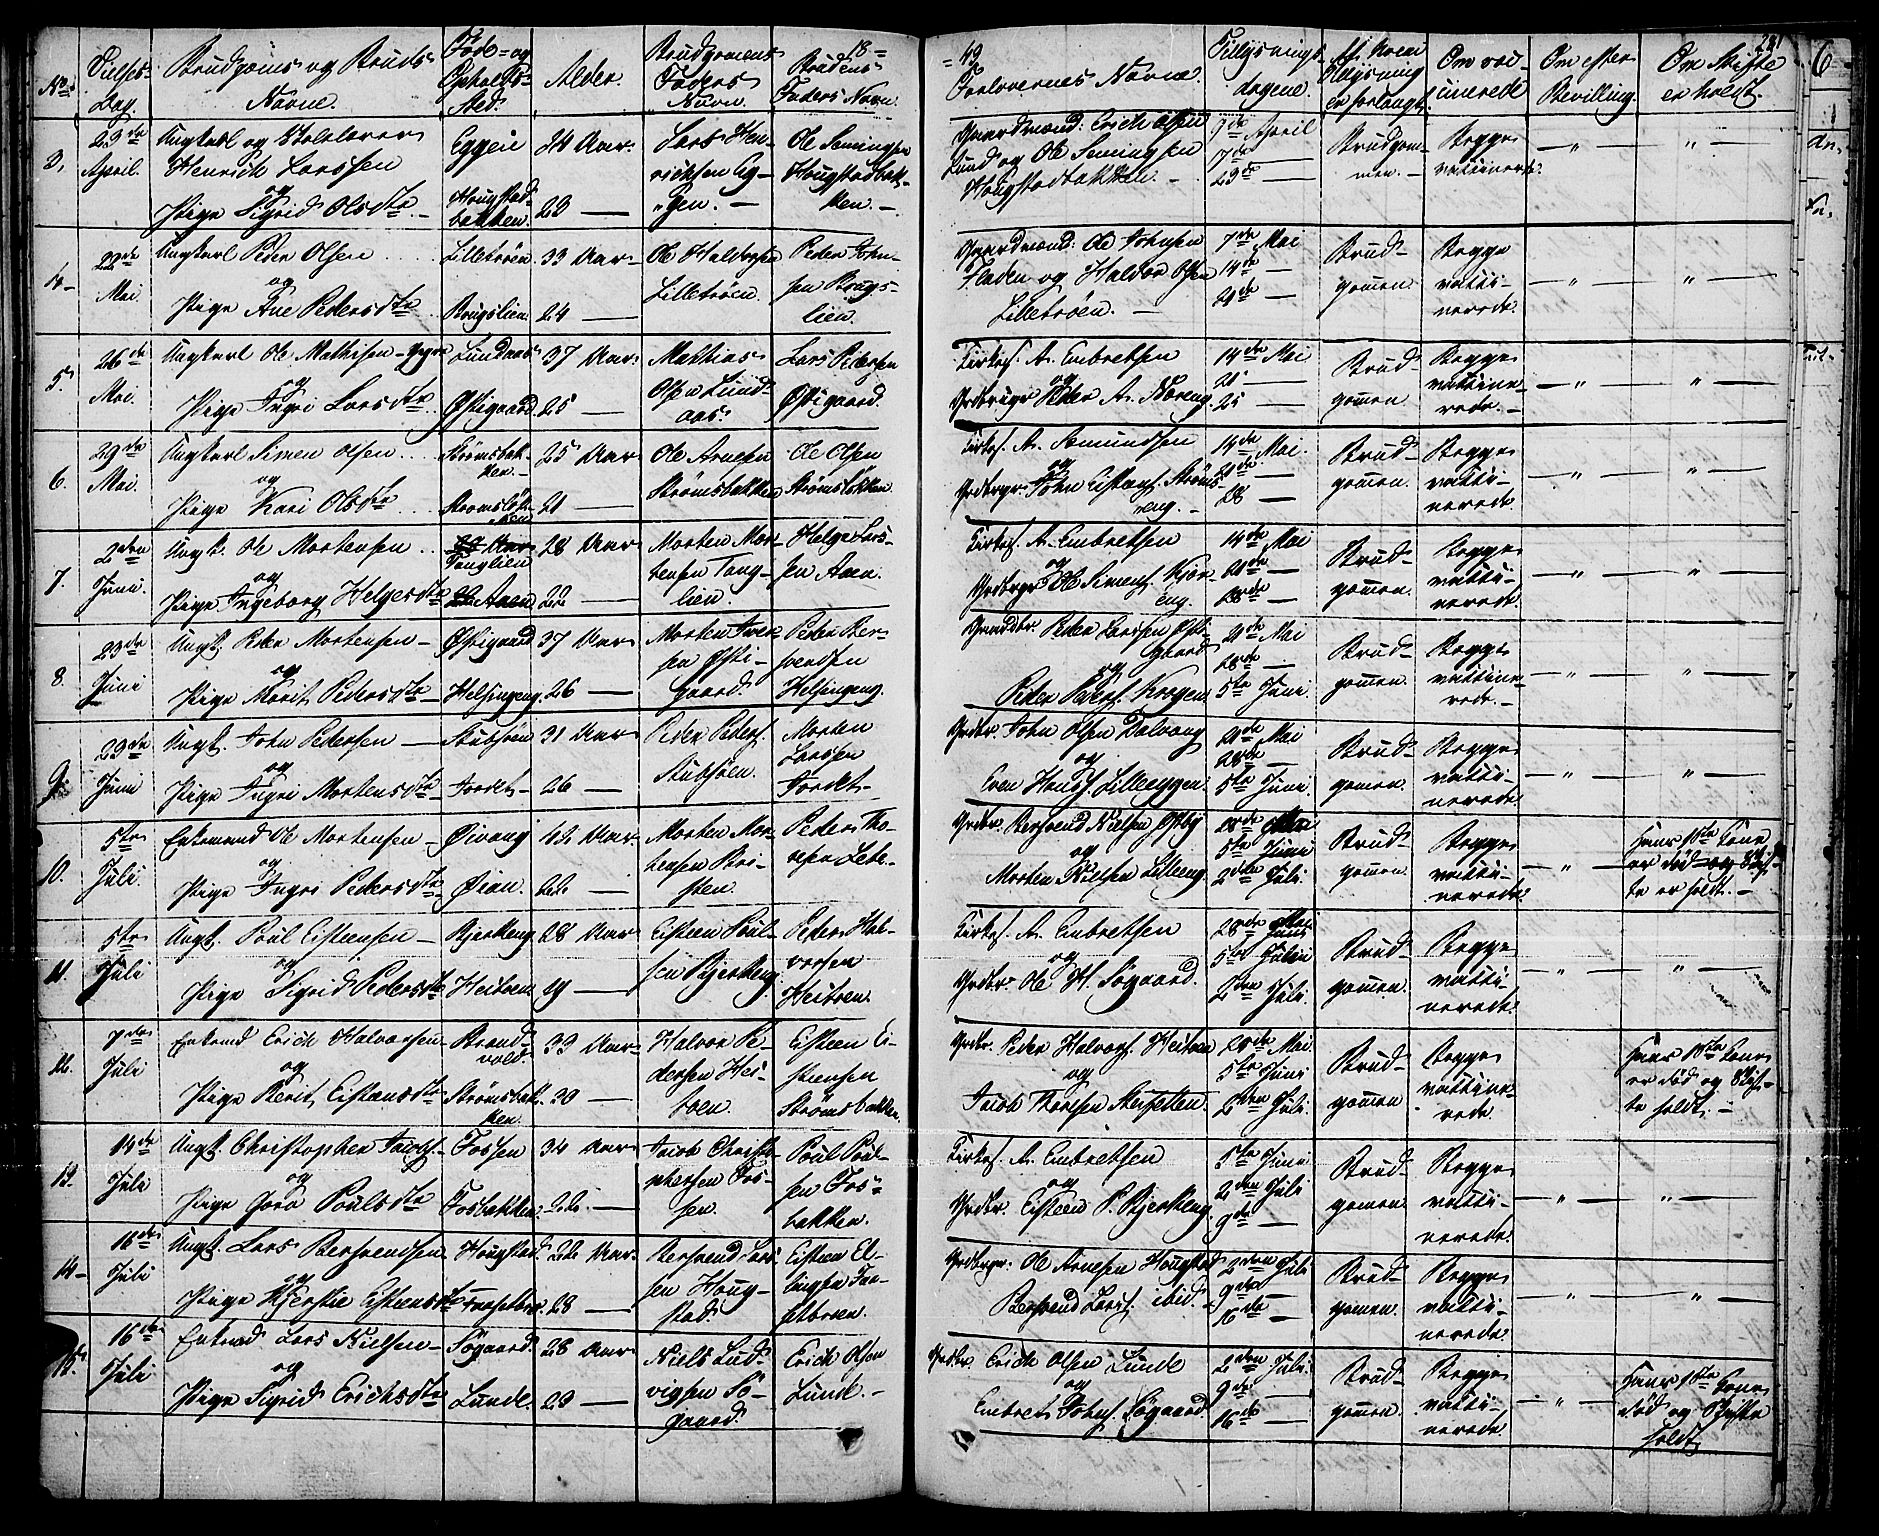 No.
Vielses-
Dag.
Brudgoms og Bruds
Navne.
Føde- og
Opholds-
Sted.
Alder.
Brudgomens
Faders
Navn.
18=
Brudens
Faders Navn.
=49
Forlovernes Navne.
Tillysnings-
dagene.
Af hvem
Tillysning
er forlangt.
Om vac-
cinerede
Om efter
Bevilling.
Om Skifte
er holdt.
281
3.
23de
April.
Ungkarl og
Henrich Larssen
og
Pige Sigrid Olsdtr.
Eggen
Hougstad-
bakken.
24 Aar.
23 —
Lars Hen-
richsen Eg-
gen. —
Ole Semingsen
Hougstadbak-
ken. —
Gaardmænd: Erich Olsen
Lund og Ole Semingsen
Hougstadbakken. —
9de April
17de —
23de —
Brudgom-
men.
Begge
vaccinerede.
— " —
" —
4.
22de
Mai.
Ungkarl Peder Olsen
og
Pige Ane Pedersdtr
Lilletrøen.
Brugslien.
33 Aar.
24 —
Ole Haldorsen
Lilletrøen.
Peder John-
sen Brugs-
lien.
Gaardmænd: Ole Johnsen
Fladen og Haldor Olsen
Lilletrøen. —
7de Mai
14de —
21de —
Brud-
gomen.
Begge
vacci-
nerede.
— " —
" —
5.
26de
Mai.
Ungkarl Ole Mathisen
og
Pige Ingri Larsdtr.
Lundaas
Østigaard
37 Aar.
25 —
Mathias
Olsen Lund-
aas.
Lars Pedersen
Østigaard.
Kirkes. A. Embretsen
og
Grdbruger Peder A. Moreng
14de Mai
21 —
25 —
Brud-
gomen.
Begge
vaccine-
rede. —
— " —
" —
6.
29de
Mai.
Ungkarl Simen Olsen
og
Pige Kari Olsdtr
Strømsbak-
ken. —
25 Aar
21 —
Ole Arnesen
Strømsbakken
Ole Olsen
Strømsløkken.
Kirkes. A. Amundsen
og
Grdbrgr John Eistens. Strøms-
eng. —
14de Mai.
21de —
28 —
Brud-
gomen.
Begge
vacci-
nerede.
— " —
" —
7.
2den
Juni.
Ungk. Ole Mortensen
og
Pige Ingeborg Helgesdtr
Tanglien
Aaen
28 Aar
22 —
Morten Mor-
tensen Tang-
lien.
Helge Lars-
sen Aaen.
Kirkes. A. Embretsen
og
Grdbrgr Ole Simens. Kjør-
eng.
14de Mai
21de —
28de —
Brud-
gomen.
Begge
vacci-
nerede.
— " —
" —
8.
23de
Juni
Ungk. Peder Mortensen —
og
Pige Marit Pedersdtr
Østigaard
Helsingeng.
37 Aar
26 —
Morten Iver-
sen Østi-
gaard.
Peder Ber-
svendsen
Helsingeng.
Grdbr. Peder Larssen Østi-
gaard
og
Peder Peders. Krogen.
21de Mai
28de —
5te Juni.
Brud-
gomen.
Begge
vaccine-
rede. —
— " —
" —
9.
23de
Juni
Ungk. John Pedersen —
og
Pige Ingri Mortensdtr
Stubsøen
Jordet
31 Aar
26 —
Peder Peders.
Stubsøen.
Morten
Larssen
Jordet —
Grdbr. John Olsen Dalvang
og
Even Hanss. Lilleeggen.
21de Mai
28de —
5te Juni.
Brud-
gomen.
Begge
vacci-
nerede.
— " —
" —
10.
5te
Juli.
Enkemand Ole Mortensen —
og
Pige Ingri Pedersdtr
Øivang
Øian.
42 Aar.
22 —
Morten Mor-
tensen Bri-
sten.
Peder Tho-
resen
Grdbr. Bersvend Nielsen Østby
og
Morten Nielsen Lilleeng
28de Mai
5te Juni
2den Juli.
Brud-
gomen.
Begge
vacci-
nerede.
— " —
Hans 1ste Kone
er død og Skif-
te er holdt. —
11.
5te
Juli
Ungk. Poul Eisteensen —
og
Pige Sigrid Pedersdtr
Bjerkeng
Heitoen.
28 Aar.
19 —
Eisteen Poul-
sen Bjerkeng.
Peder Hal-
vorsen
Heitoen.
Kirkes. A. Embretsen
og
Grdbr. Ole H. Søgaard.
28de Mai
5te Juni
2den Juli.
Brud-
gomen.
Begge
vacci-
nerede.
— " —
" —
12.
7de
Juli
Enkemd Erich Halvorsen
og
Pige Berit Eisteensdtr
Brand-
vold.
Strømsbak-
ken.
33 Aar.
30 —
Halvor Pe-
dersen Hei-
toen.
Eisteen Ei-
steensen
Strømsbakken.
Grdbr. Peder Halvors. Heitoen
og
Jacob Thoresen
28de Mai.
5te Juni
2den Juli.
Brud-
gomen.
Begge
vaccine-
rede.
— " —
Hans 1ste Kone
er død og Skif-
te holdt. —
13.
14de
Juli
Ungk. Christopher Jacobs.
og
Pige Goro Poulsdtr
Fossen
Fosbakken.
34 Aar
22. —
Jacob Christo-
phersen Fos-
sen.
Poul Poul-
sen Fos-
bakken.
Kirkes. A. Embretsen
og
Grdbr. Eisteen P. Bjerkeng.
5te Juni
2den Juli
9de —
Brud-
gomen.
Begge
vacci-
nerede.
— " —
" —
14.
16de
Juli
Ungk. Lars Bersvendsen
og
Pige Kjerstie Eisteensdtr
Hougstad.
22 Aar.
28 —
Bersvend Lars-
sen Houg-
stad.
Eisteen El-
lingsen
Grdbrgr. Ole Arnesen Hougstad
Bersvend Larss. ibid. —
2den Juli
9de —
16de —
Brud-
gomen.
Begge
vacci-
nerede.
— " —
" —
15.
16de
Juli
Enkemd Lars Nielsen —
og
Pige Sigrid Erichsdtr
Søgaard.
Lunde.
28 Aar
23 —
Niels Lud-
vigsen Sø-
gaard.
Erich Olsen
Lunde. —
Grdbr. Erich Olsen Lunde
og
Embret Johns. Søgaard.
2den Juli.
9de —
16de —
Brud-
gomen.
Begge
vacci-
nerede.
— " —
Hans 1ste Kone
død og Skifte
holdt.